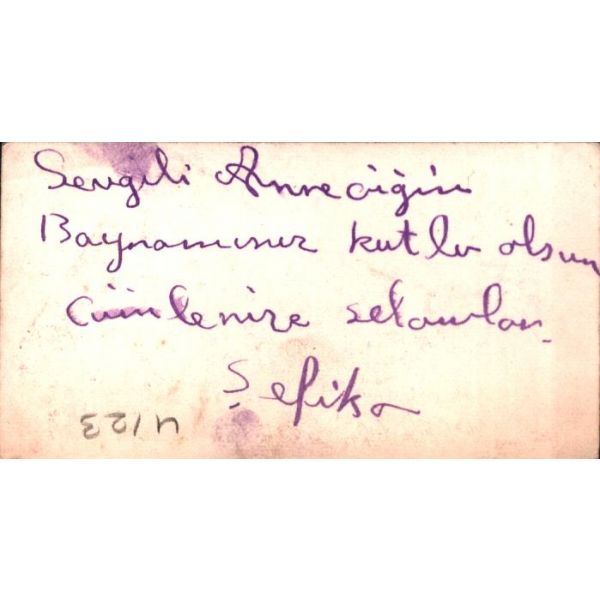 Sevgili Anneciğim
Bayramınız kutlu olsun
Cümlenize selamlar.
Şefika
4123